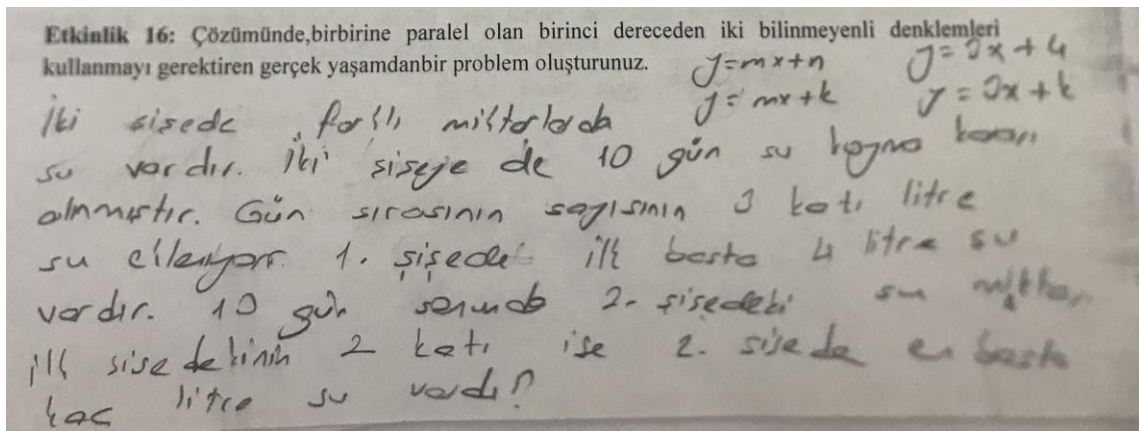 Etkinlik 16: Çözümünde,birbirine paralel olan birinci dereceden iki bilinmeyenli denklemleri
kullanmayı gerektiren gerçek yaşamdanbir problem oluşturunuz.
y=mx+n y=3x+4
y=mx+k y=3x+k
İki şişede farklı miktarlarda
su vardır. İki şişeye de 10 gün su koyma kararı
alınmıştır. Gün sırasının sayısının 3 katı litre
su ekleniyor. 1. şişede ilk başta 4 litre su
vardır. 10 gün sonunda 2. şişedeki su miktarı
ilk şişedekinin 2 katı ise 2. şişede en başta
kaç litre su vardı?